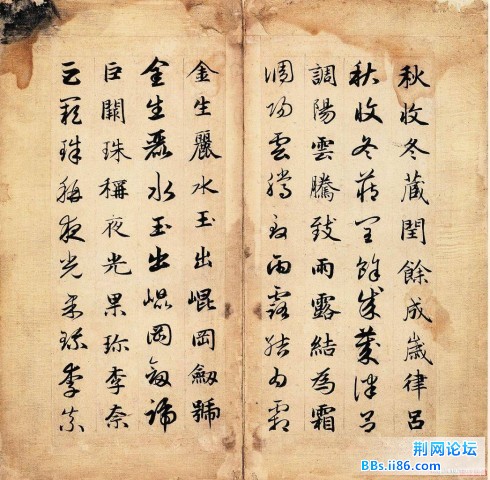 秋收冬藏閏餘成歲律呂
秋收冬藏閏餘成歲律呂
調陽雲騰致雨露結為霜
調陽雲騰致雨露結為霜
金生麗水玉出崐岡劔號
金生麗水玉出崐岡劔號
巨闕珠稱夜光果珍李奈
巨闕珠稱夜光果珍李奈
荆网论坛
BBs.ii86.com